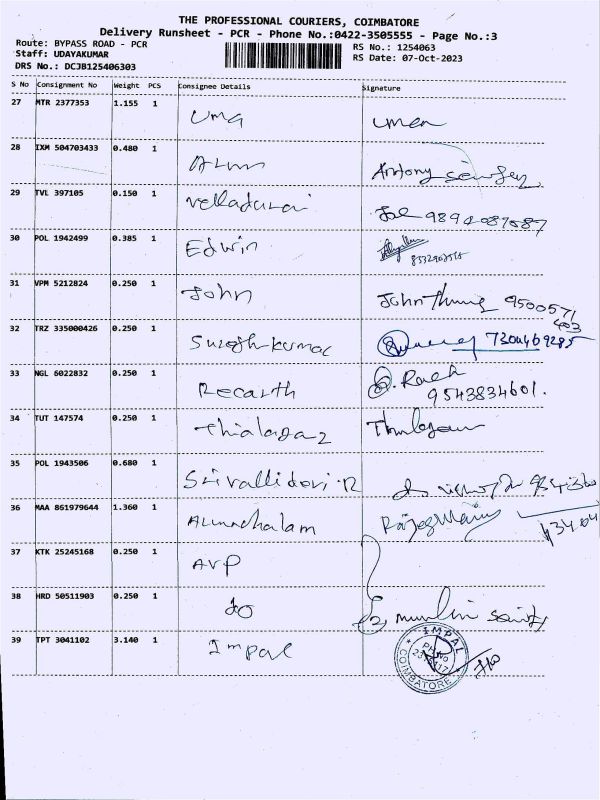 THE PROFESSIONAL COURIERS, COIMBATORE
Delivery Runsheet - PCR - Phone No.:0422-3505555 - Page No.:3
Route: BYPASS ROAD - PCR
Staff: UDAYAKUMAR
DRS No.: DCJB125406303
RS No.: 1254063
RS Date: 07-Oct-2023
S No Consignment No Weight PCS Consignee Details Signature
27 MTR 2377353 1.155 1 Uma
28 IXM 504703433 0.480 1 Arun Antony
29 TVL 397105 0.150 1 Velladurai
30 POL 1942499 0.385 1 Edwin
31 VPM 5212824 0.250 1 John John 9500571
403
32 TRZ 335000426 0.250 1 Suresh kumar
33 NGL 6022832 0.250 1
9543834601.
34 TUT 147574 0.250 1
35 POL 1943506 0.680 1 Srivallidevi.R
36 MAA 861979644 1.360 1 Arunachalam
37 KTK 25245168 0.250 1 AVP
38 HRD 50511903 0.250 1 do
39 TPT 3041102 3.140 1 Impal
IMPAL
COIMBATORE